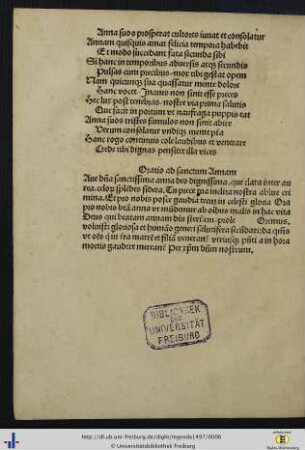 Anna suos prosperat cultores iuuat et consolatur
Annam quisquis amat felicia tempora habebit
Et modo succedant fata secunda sibi
Si hanc in temporibus aduersis atqz secundis
Pulset cum precibus mox tibi gestat opem
Nam quicunqz sua quassatur mente dolore
Hanc vocet. Inanes non sinit esse preces
Hec lux post tenebras nostre via prima salutis
Que facit in portum vt naufraga puppis eat
Anna suos tristes famulos non sinit abire
Verum consolatur vndiqz mente pia
Hanc rogo continuis cole laudibus et venerare
Crede tibi dignas pensitet illa vices
Oratio ad sanctam Annam
Aue dña sanctissima anna deo dignissima. que clara inter au
rea. celoz splẽdes sidera. Tu prece pia nostra ablue cri
mina. Et pro nobis posce gaudia tecuz in celesti gloria Ora
pro nobis btã anna vt mũdemur ab oĩbus malis in hac vita
Deus qui beatam annam diu sterilem prole Oremus.
voluisti gloriosa et humão generi salutifera
mortis gaudere mereant̃ Per xp̃m dñm nostrum.
BIBLIOTHEK
DER
UNIVERSITÄT
FREIBURG
http://dl.ub.uni-freiburg.de/diglit/legenda1497/0006
© Universitätsbibliothek Freiburg